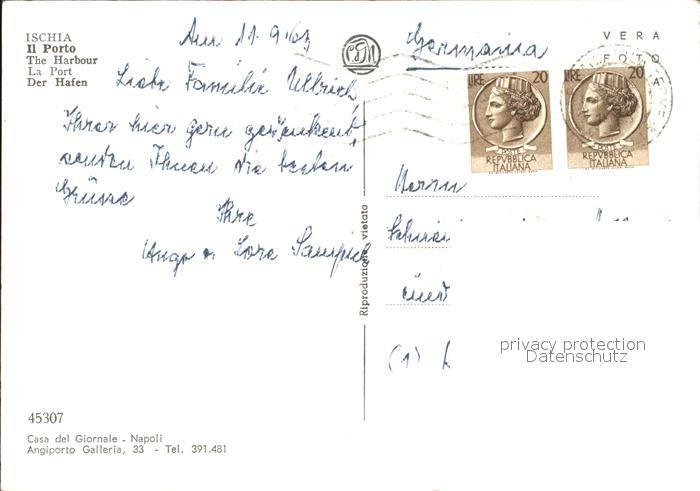 ISCHIA
Il Porto
The Harbour
La Port
Der Hafen
Am 11.9.63
Liebe Familie Ullrich
Ihrer hier gern gedenkend,
senden Ihnen die besten
Grüsse
Ihre
Hugo u. Lore
Germania
VERA
FOTO
LIRE 20
POSTE
REPVBBLICA
ITALIANA
LIRE 20
POSTE
REPVBBLICA
ITALIANA
Herrn
und
(1)
Riproduzione vietata
privacy protection
Datenschutz
45307
Casa del Giornale - Napoli
Angiporto Galleria, 33 - Tel. 391.481